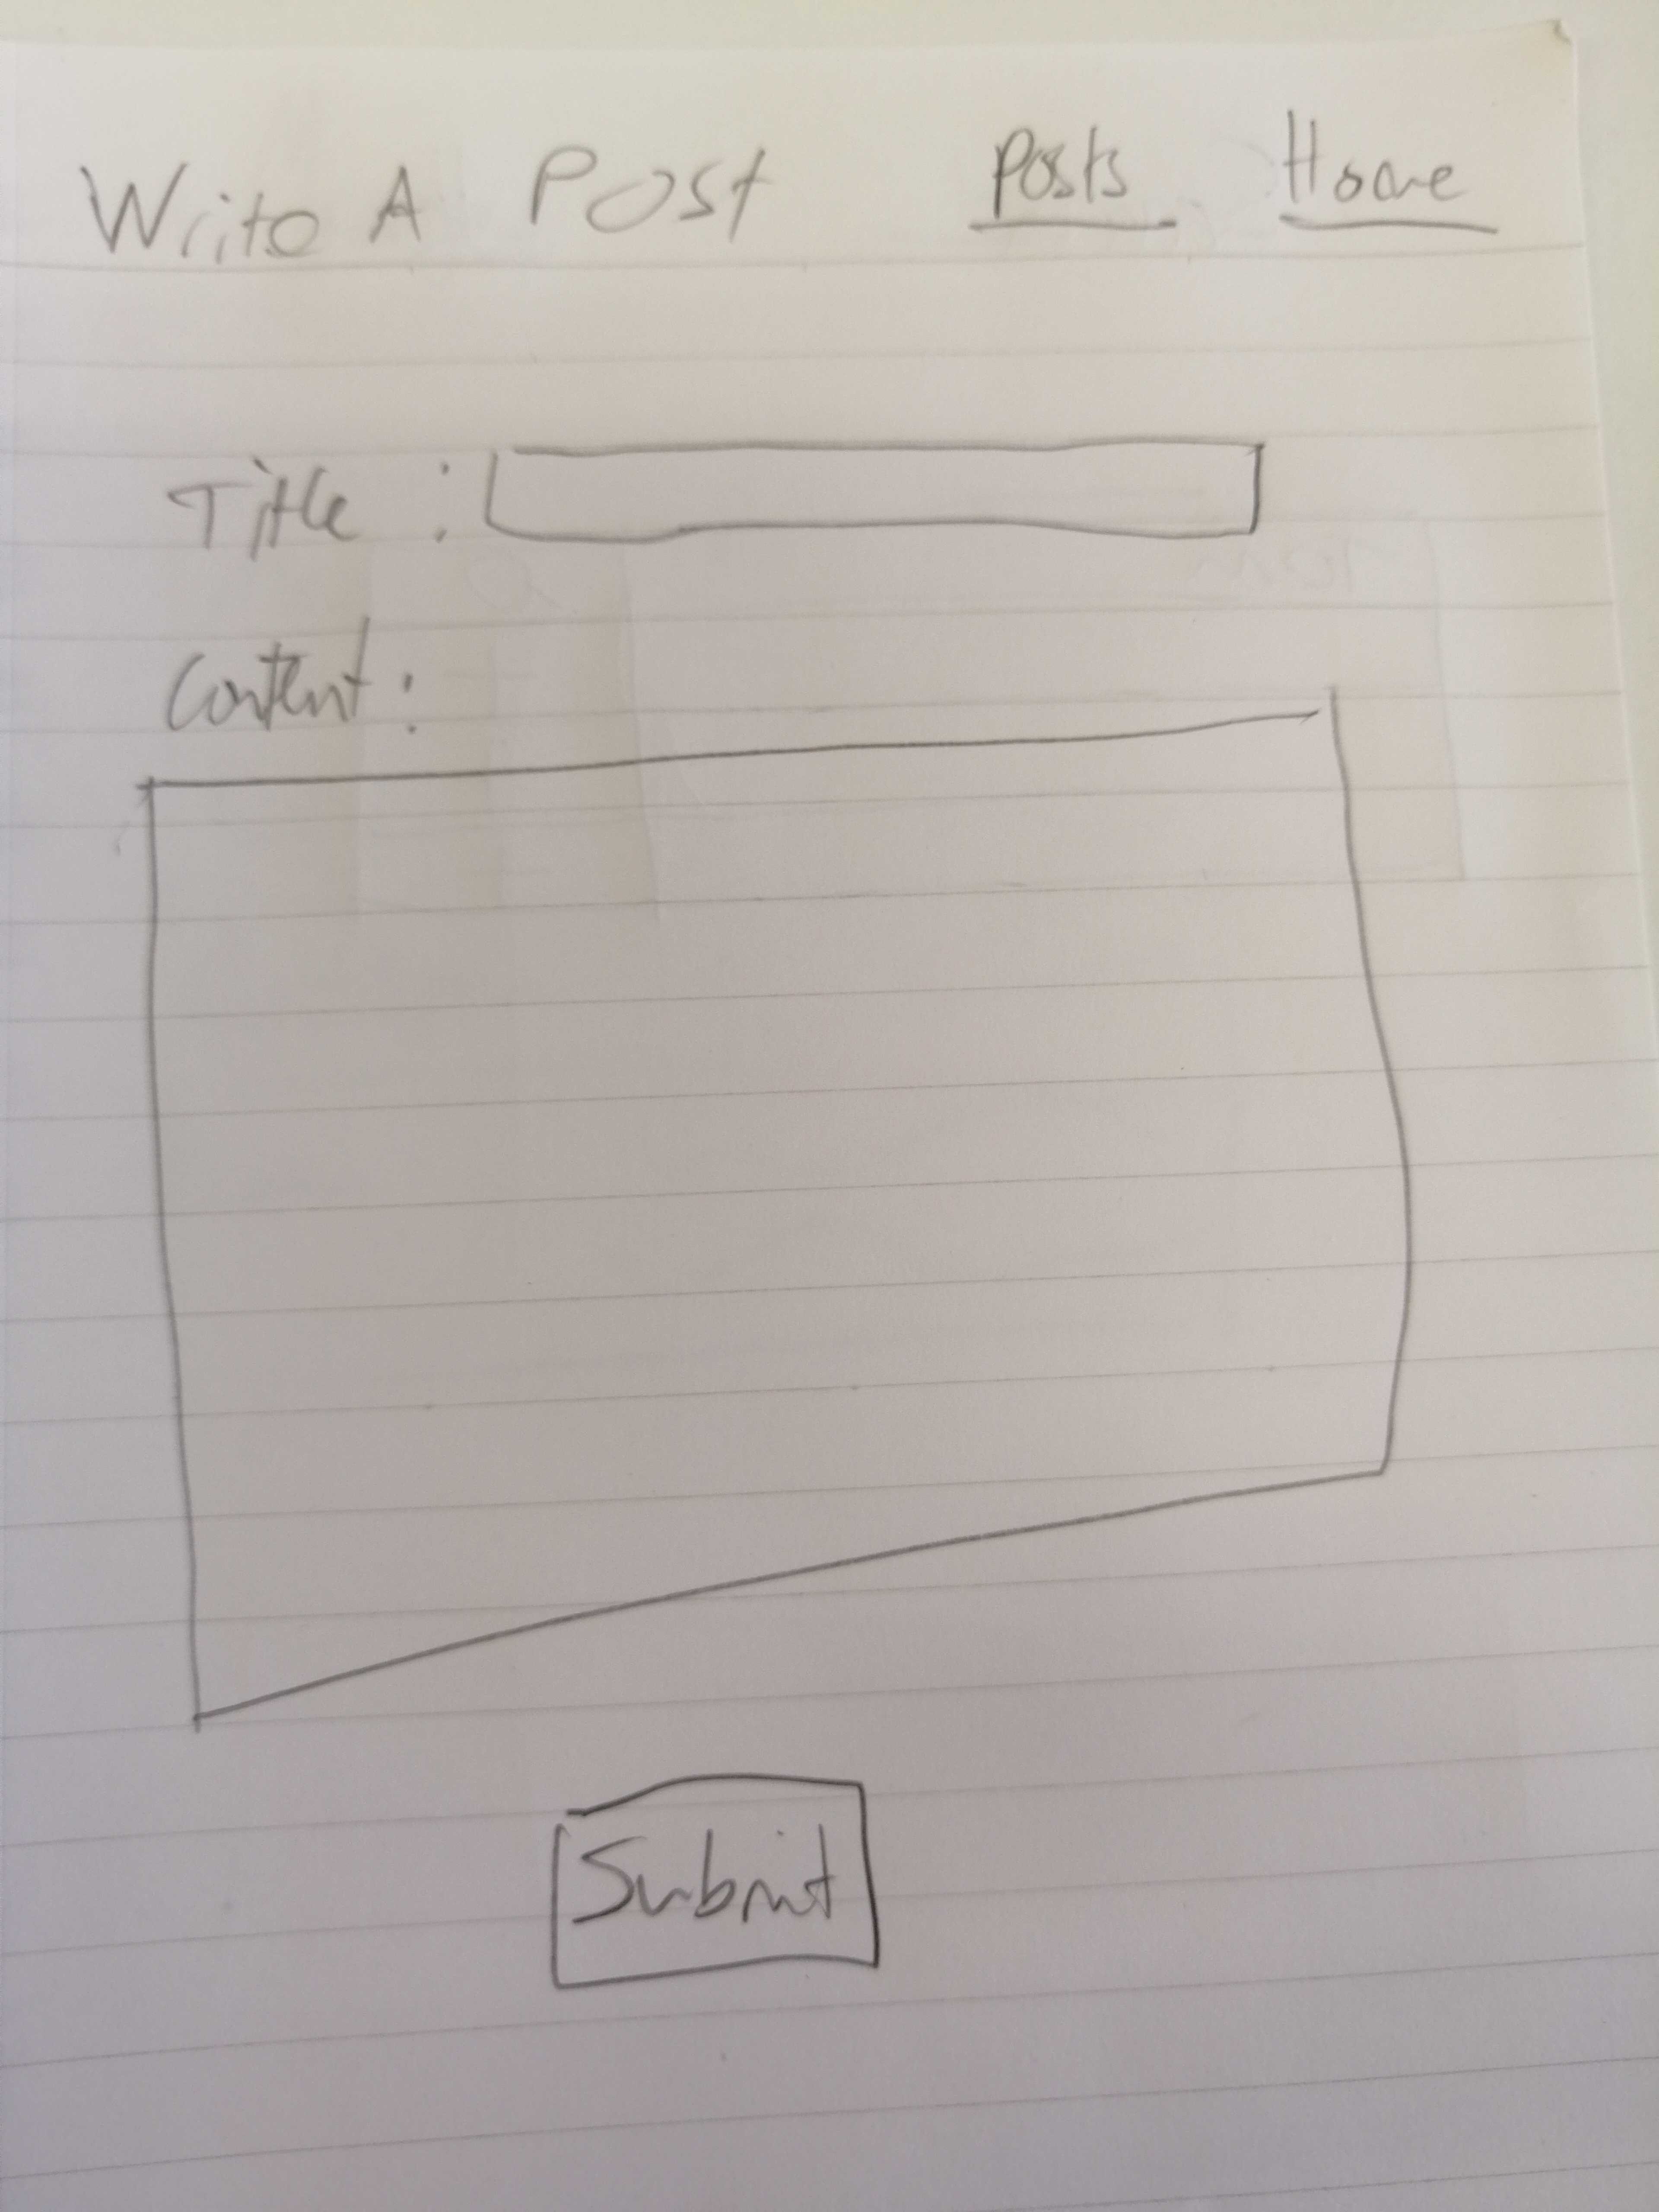 Write A Post Posts Home
Title :
Content :
Submit